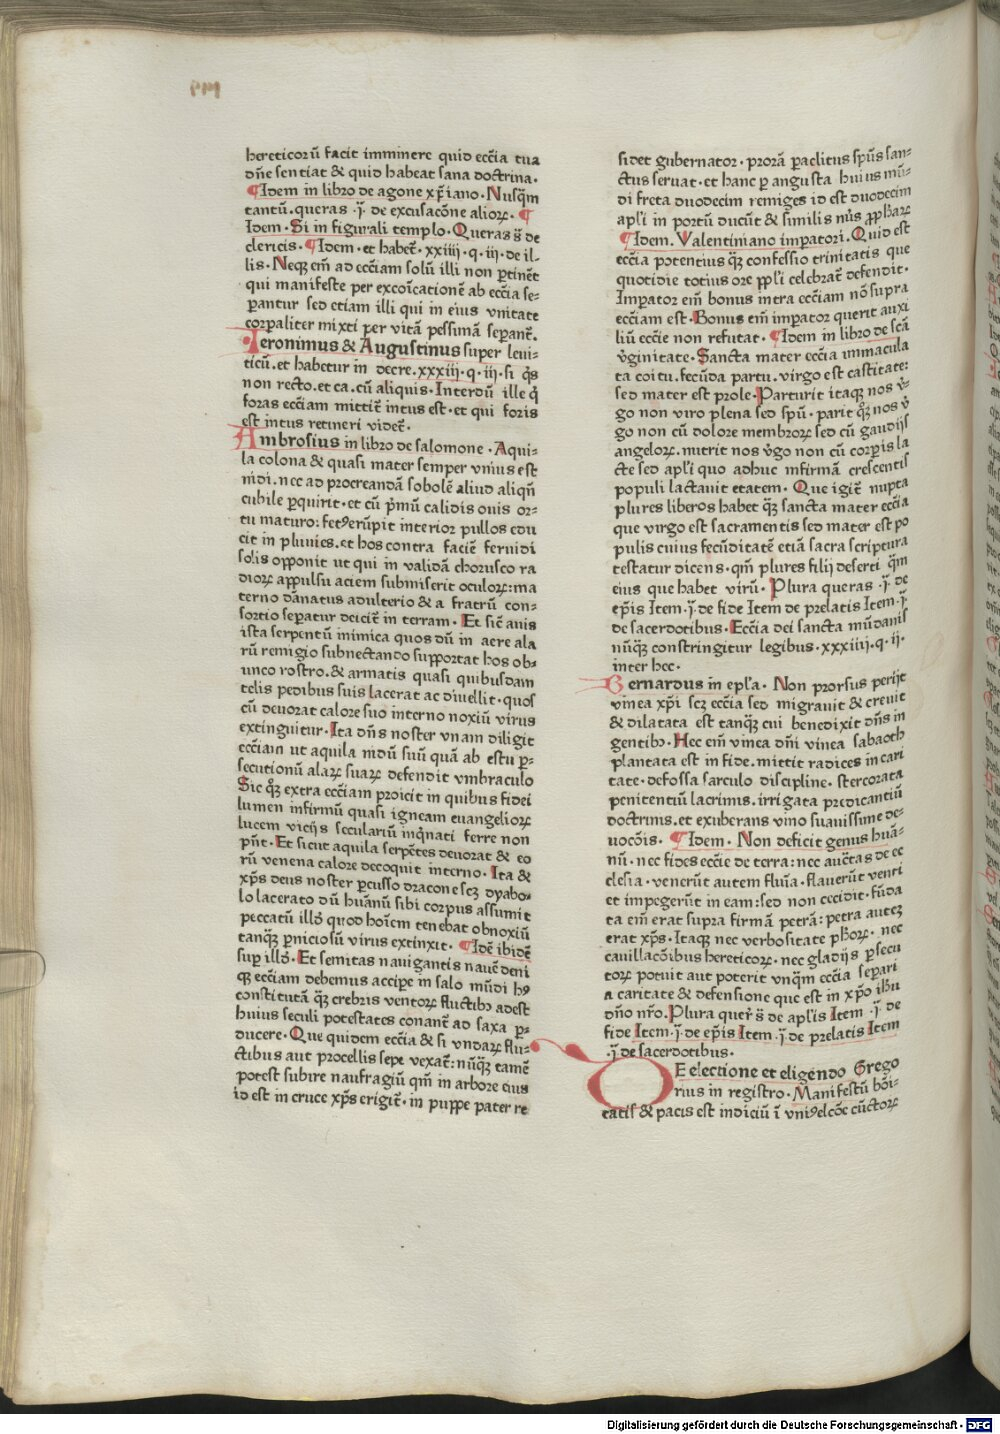 hereticorū facit imminere quid eccīa tua
dn̄e sentiat & quid habeat sana doctrina.
¶Idem in libro de agone xp̄iano. Nusq̄m
tantū. queras .ȷ̄. de excusacōne alioꝝ. ¶
Idem. Si in figurali templo. Queras s̄ de
clericis. ¶Idem. et habet̄. xxiiii. q. iii. de il-
lis. Neqꝫ em̄ ad eccīam solū illi non ꝑtinēt
qui manifeste per excoīcationē ab eccīa se-
ꝑantur sed etiam illi qui in eius vnitate
corꝑaliter mixti per vitā pessimā seꝑant̄.
Ieronimus & Augustinus super leui-
ticū. et habetur in decre. xxxiii. q. iii. si q̄s
non recto. et ca. cū aliquis. Interdū ille q̄
foras eccīam mittit̄ intus est. et qui foris
est intus retineri videt̄.
Ambrosius in libro de salomone. Aqui-
la colona & quasi mater semper vnius est
nidi. nec ad procreandā sobolē aliud aliqn̄
cubile ꝑquirit. et cū pͥmū calidis ouis or-
tu maturo: fetꝰ erūpit interior pullos edu
cit in pluuies. et hos contra faciē feruidi
solis opponit ut qui in validā chorusco ra
dioꝝ appulsu aciem submiserit oculoꝝ: ma
terno dānatus adulterio & a fratrū con-
sortio seꝑatur deicit̄ in terram. Et sic̄ auis
ista serpentū inimica quos dū in aere ala
rū remigio subnectando supportat hos ob-
unco rostro. & armatis quasi quibusdam
telis pedibus suis lacerat ac diuellit. quos
cū deuorat calore suo interno noxiū virus
extinguitur. Ita dn̄s noster vnam diligit
eccīam ut aquila nidū suū quā ab estu ꝑ-
secutionū alaꝝ suaꝝ defendit vmbraculo
Sic qꝫ extra eccīam proicit in quibus fidei
lumen infirmū quasi igneam euangelioꝝ
lucem vicijs seculariū inqͥnati ferre non
pn̄t. Et sicut aquila serpētes deuorat & eo
rū venena calore decoquit interno. Ita &
xp̄s deus noster ꝑcusso dracone scꝫ dyabo-
lo lacerato dū huānū sibi corpus assumit
peccatū illd̄ quod hoīem tenebat obnoxiū
tanqꝫ ꝑniciosū virus extinxit. ¶Idē ibidē
suꝑ illd̄. Et semitas nauigantis nauē deni
qꝫ eccīam debemus acciꝑe in salo mūdi hꝰ
constitutā qꝫ crebris ventoꝝ fluctibꝫ adest
huius seculi potestates conant̄ ad saxa ꝑ-
ducere. Que quidem eccīa & si vndaꝝ flu-
ctibus aut procellis sepe vexat̄: nūqꝫ tamē
potest subire naufragiū qm̄ in arbore eius
id est in cruce xp̄s erigit̄. in puppe pater re
sidet gubernator. prorā ꝑaclitus spūs san-
ctus seruat. et hanc ꝑ angusta huius mū-
di freta duodecim remiges id est duodecim
apl̄i in portū ducūt & similis nūs ꝓphaꝝ
¶Idem. Valentiniano imꝑatori. Quid est
eccīa potentius qꝫ confessio trinitatis que
quotidie totius ore ppl̄i celebrat̄ defendit.
Imꝑator em̄ bonus intra eccīam nō supra
eccīam est. Bonus em̄ imꝑator querit auxi
liū eccīe non refutat. ¶Idem in libro de scā
v̄ginitate. Sancta mater eccīa immacula
ta coitu. fecūda partu. virgo est castitate:
sed mater est prole. Parturit itaqꝫ nos v̄-
go non viro plena sed spū. parit qꝫ nos v̄
go non cū dolore membroꝝ sed cū gaudijs
angeloꝝ. nutrit nos v̄go non cū corꝑis la
cte sed apl̄i quo adhuc infirmā crescentis
populi lactauit etatem. Que igit̄ nupta
plures liberos habet qꝫ sancta mater eccīa
que virgo est sacramentis sed mater est po
pulis cuius fecūditatē etiā sacra scriptura
testatur dicens. qm̄ plures filij deserti qꝫm
eius que habet virū. Plura queras .ȷ̄. de
ep̄is Item .ȷ̄. de fide Item de prelatis Item .ȷ̄.
de sacerdotibus. Eccīa dei sancta mūdanis
nūqꝫ constringitur legibus. xxxiiii. q. ii.
inter hec.
Bernardus in epl̄a. Non prorsus perijt
vinea xp̄i scꝫ eccīa sed migrauit & creuit
& dilatata est tanqꝫ cui benedixit dn̄s in
gentibꝫ. Hec em̄ vinea dn̄i vinea sabaoth
plantata est in fide. mittit radices in cari
tate. defossa sarculo discipline. stercorata
penitentiū lacrimis. irrigata predicantiū
doctrinis. et exuberans vino suauissime de-
uocōis. ¶Idem. Non deficit genus huā-
nū. nec fides eccīe de terra: nec aucītas de ec
clesia. venerūt autem fluīa. flauerūt venti
et impegerūt in eam: sed non cecidit. fūda
ta em̄ erat supra firmā petrā: petra autez
erat xp̄s. Itaqꝫ nec verbositate pħoꝝ. nec
cauillacōibus hereticoꝝ. nec gladijs ꝑsecu
toꝝ potuit aut poterit vnqꝫm eccīa seꝑari
a caritate & defensione que est in xp̄o ihū
dn̄o nr̄o. Plura quer̄s s̄ de apl̄is Item .ȷ̄. de
fide Item .ȷ̄. de ep̄is Item .ȷ̄. de prelatis Item
.ȷ̄. de sacerdotibus.
DE electione et eligendo Grego
rius in registro. Manifestū bōi-
tatis & pacis est indiciū ī vniꝰ elcōe cūctoꝝ
Digitalisierung gefördert durch die Deutsche Forschungsgemeinschaft - DFG